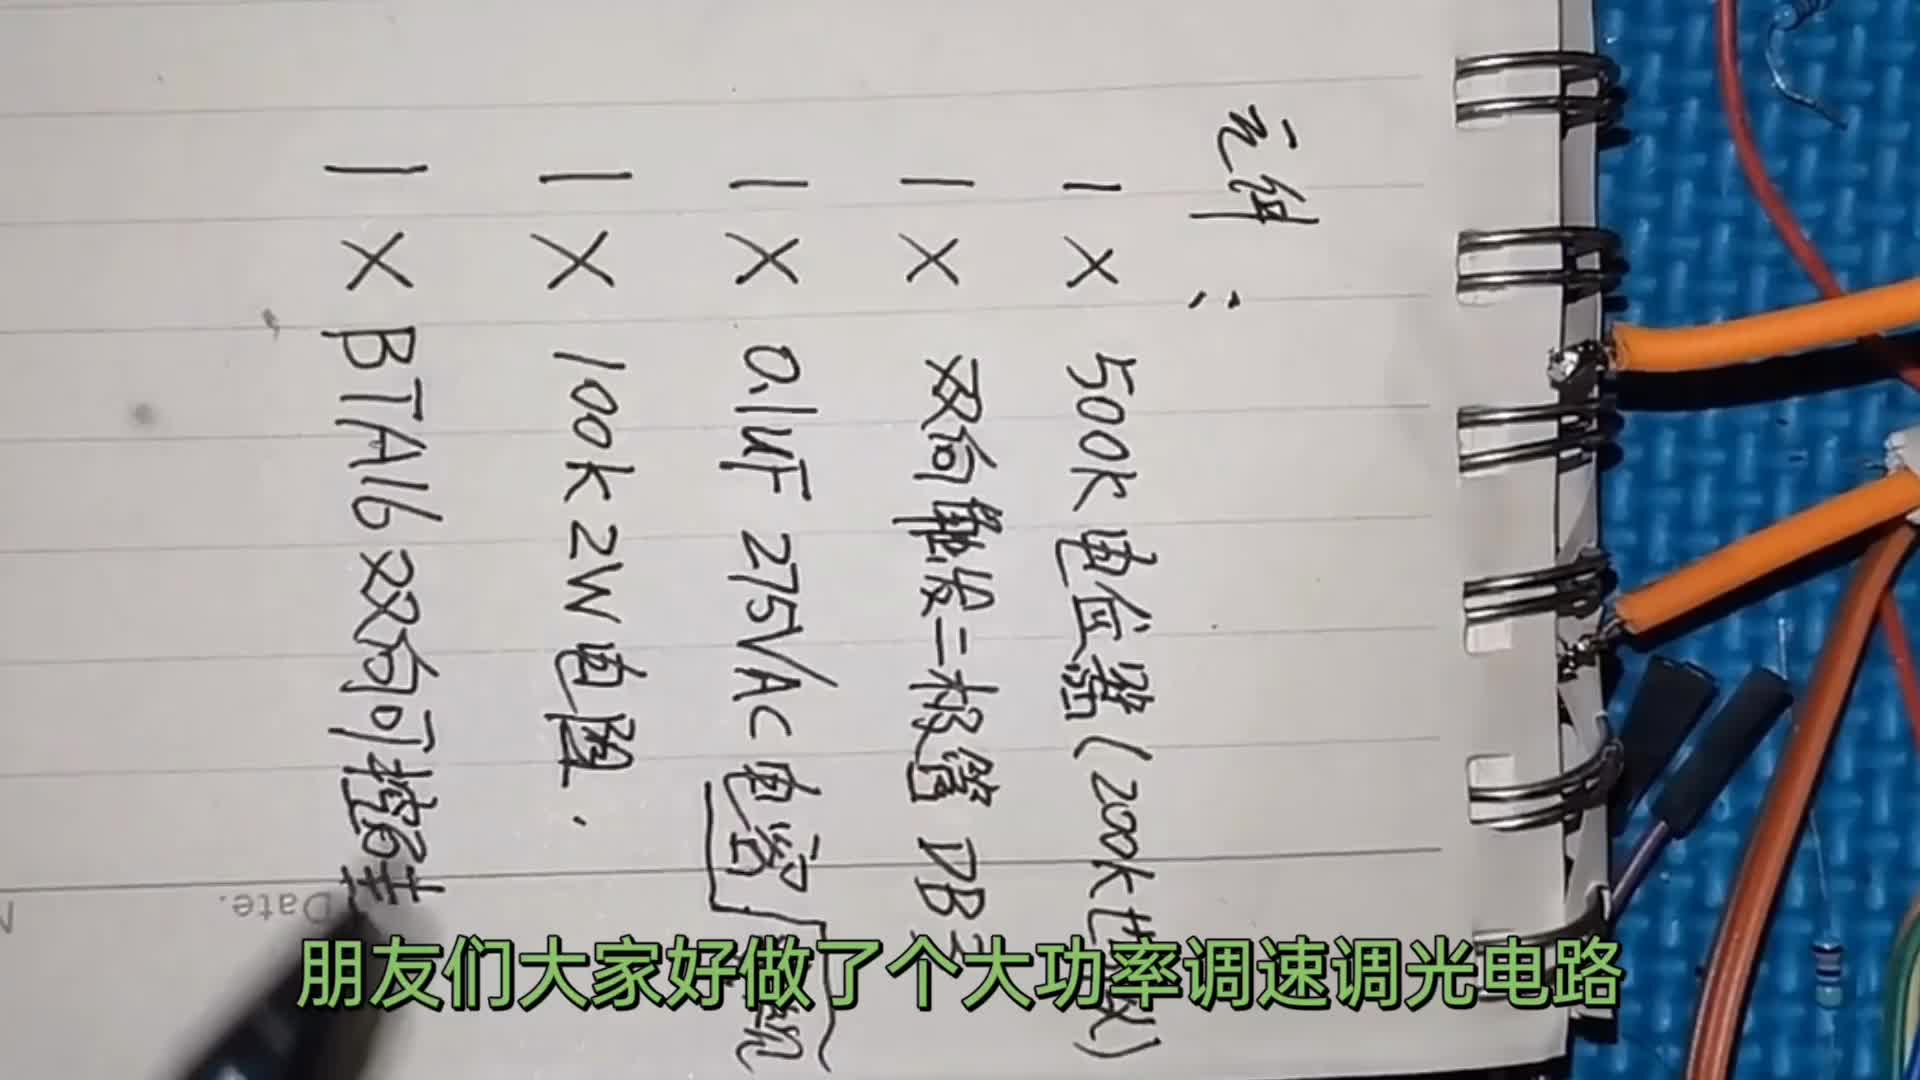 元件:
1 X 500K电位器(200K也
1 X 双向触发二极管 DB
1 X 0.1uF 275VAC 电容
1 X 100K 2W 电阻.
1 X BTA16 双向可控硅
Date.
朋友们大家好做了个大功率调速调光电路